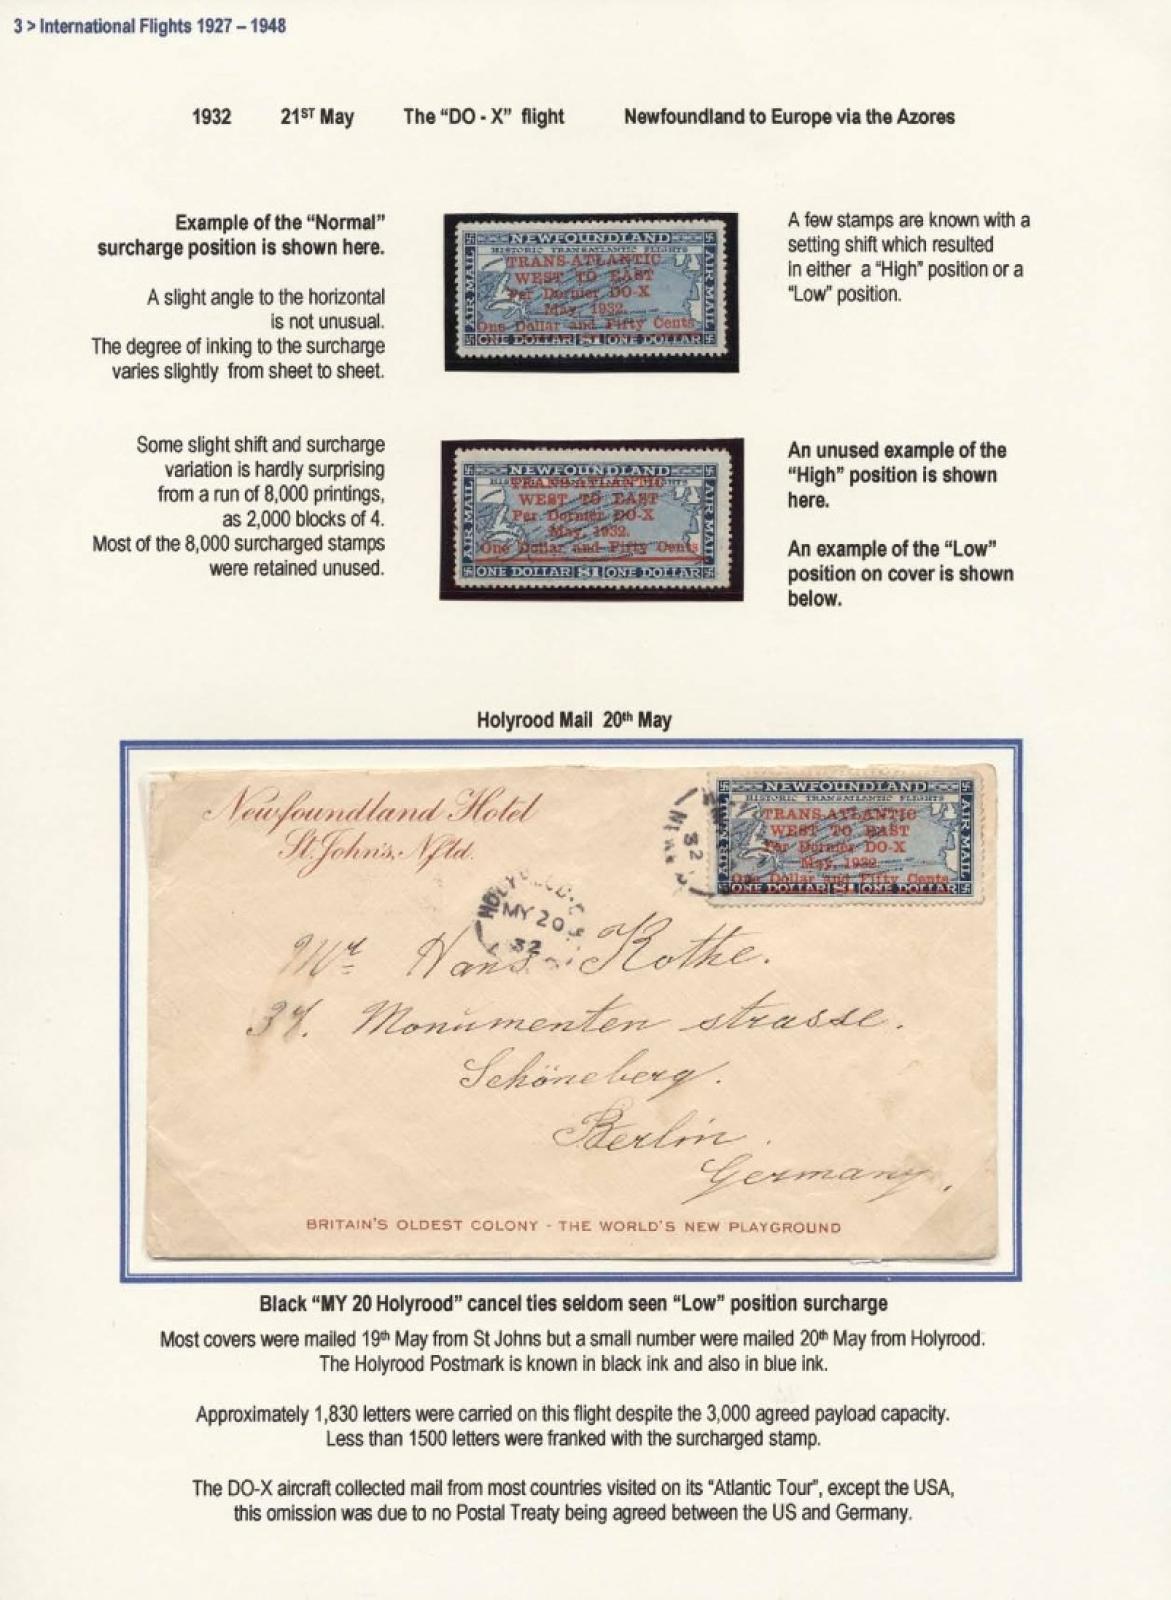 3 > International Flights 1927 – 1948
1932 21ST May The “DO - X” flight Newfoundland to Europe via the Azores
Example of the “Normal”
surcharge position is shown here.
A slight angle to the horizontal
is not unusual.
The degree of inking to the surcharge
varies slightly from sheet to sheet.
NEWFOUNDLAND
HISTORIC TRANSATLANTIC FLIGHTS
AIR MAIL
AIR MAIL
TRANS-ATLANTIC
WEST TO EAST
Per Dornier DO-X
May, 1932.
One Dollar and Fifty Cents
ONE DOLLAR $1 ONE DOLLAR
A few stamps are known with a
setting shift which resulted
in either a “High” position or a
“Low” position.
Some slight shift and surcharge
variation is hardly surprising
from a run of 8,000 printings,
as 2,000 blocks of 4.
Most of the 8,000 surcharged stamps
were retained unused.
NEWFOUNDLAND
TRANS-ATLANTIC
WEST TO EAST
Per Dornier DO-X
May, 1932.
One Dollar and Fifty Cents
AIR MAIL
AIR MAIL
ONE DOLLAR $1 ONE DOLLAR
An unused example of the
“High” position is shown
here.
An example of the “Low”
position on cover is shown
below.
Holyrood Mail 20th May
Newfoundland Hotel
St. John's, Nfld.
NEWFOUNDLAND
HISTORIC TRANSATLANTIC FLIGHTS
TRANS-ATLANTIC
WEST TO EAST
Per Dornier DO-X
May, 1932.
One Dollar and Fifty Cents
AIR MAIL
AIR MAIL
ONE DOLLAR $1 ONE DOLLAR
32
MY 20
32
Mr. Hans Rothe.
37. Monumenten strasse.
Schöneberg.
Berlin.
Germany.
BRITAIN'S OLDEST COLONY - THE WORLD'S NEW PLAYGROUND
Black “MY 20 Holyrood” cancel ties seldom seen “Low” position surcharge
Most covers were mailed 19th May from St Johns but a small number were mailed 20th May from Holyrood.
The Holyrood Postmark is known in black ink and also in blue ink.
Approximately 1,830 letters were carried on this flight despite the 3,000 agreed payload capacity.
Less than 1500 letters were franked with the surcharged stamp.
The DO-X aircraft collected mail from most countries visited on its “Atlantic Tour”, except the USA,
this omission was due to no Postal Treaty being agreed between the US and Germany.